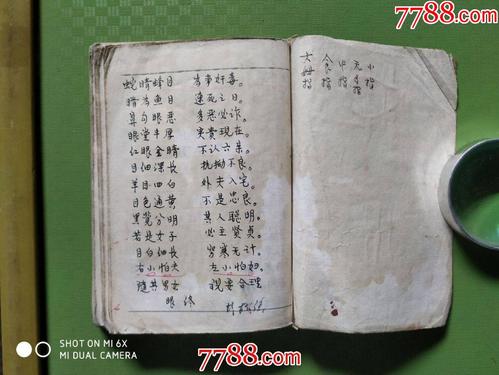 7788.com
大 食 中 无 小
拇 指 指 名 指
指 指
蛇睛蜂目 当审奸毒。
睛当鱼目 速死之日。
鼻勾眼恶 多恶必诈。
眼堂丰厚
红眼金睛 不认六亲。
目细深长 执拗不良。
羊目四白 外夫入宅。
目色通黄 不是忠良。
黑莺分明 其人聪明。
若是女子 必主贤贞。
目白细长 穷寒无计。
右小怕大 左小怕妇。
随其男女 视要合理
眼终
SHOT ON MI 6X
MI DUAL CAMERA
7788.com